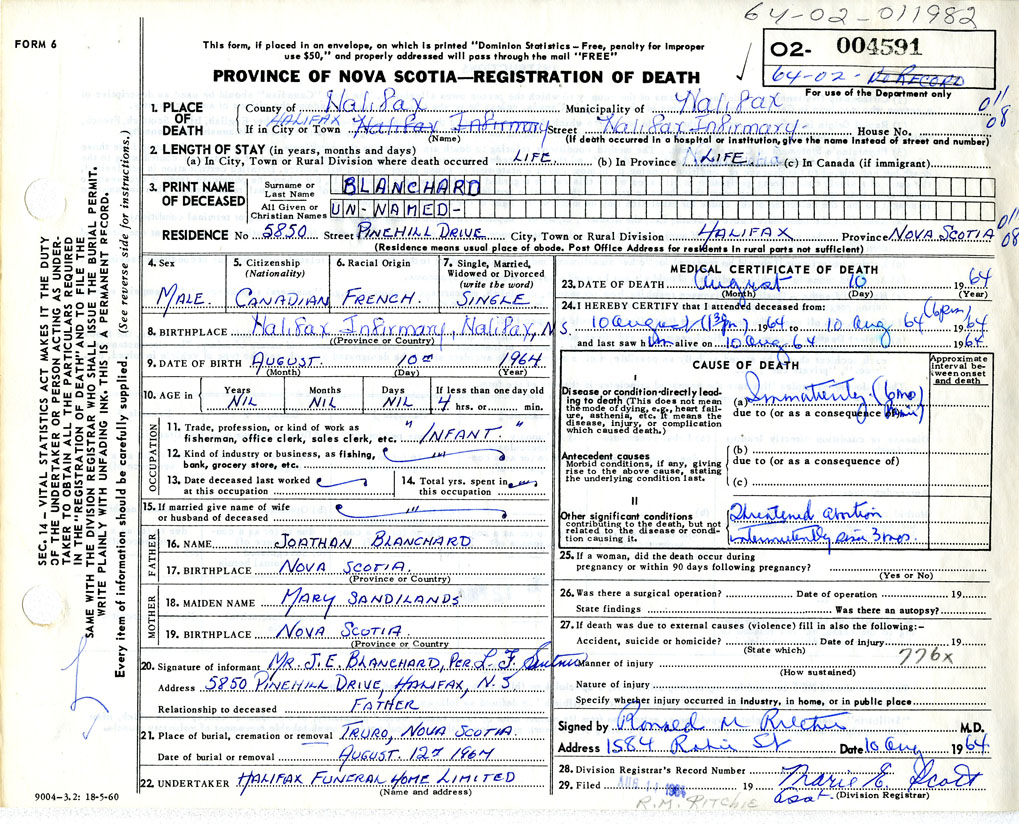 64-02-011982
FORM 6
This form, if placed in an envelope, on which is printed "Dominion Statistics – Free, penalty for improper
use $50," and properly addressed will pass through the mail "FREE"
02- 004591
64-02- No RECORD
For use of the Department only
PROVINCE OF NOVA SCOTIA—REGISTRATION OF DEATH
011
08
1. PLACE OF DEATH
County of Halifax Municipality of Halifax
HALIFAX
If in City or Town Halifax Infirmary Street Halifax Infirmary- House No.
(Name) (If death occurred in a hospital or institution, give the name instead of street and number)
2. LENGTH OF STAY (in years, months and days)
(a) In City, Town or Rural Division where death occurred LIFE (b) In Province LIFE (c) In Canada (if immigrant)
3. PRINT NAME OF DECEASED
Surname or Last Name BLANCHARD
All Given or Christian Names UN-NAMED-
RESIDENCE No 5850 Street PINEHILL DRIVE City, Town or Rural Division HALIFAX Province NOVA SCOTIA
011
08
(Residence means usual place of abode. Post Office Address for residents in rural parts not sufficient)
4. Sex
MALE.
5. Citizenship
(Nationality)
CANADIAN
6. Racial Origin
FRENCH.
7. Single, Married,
Widowed or Divorced
(write the word)
SINGLE
8. BIRTHPLACE Halifax Infirmary, Halifax, N.S.
(Province or Country)
9. DATE OF BIRTH AUGUST. 10th 1964
(Month) (Day) (Year)
10. AGE in
Years NIL
Months NIL
Days NIL
If less than one day old
4 hrs. or min.
OCCUPATION
11. Trade, profession, or kind of work as
fisherman, office clerk, sales clerk, etc. "INFANT."
12. Kind of industry or business, as fishing,
bank, grocery store, etc.
13. Date deceased last worked
at this occupation
14. Total yrs. spent in
this occupation
15. If married give name of wife
or husband of deceased
FATHER
16. NAME JOATHAN BLANCHARD
17. BIRTHPLACE NOVA SCOTIA.
(Province or Country)
MOTHER
18. MAIDEN NAME MARY SANDILANDS
19. BIRTHPLACE NOVA SCOTIA
(Province or Country)
20. Signature of informant MR. J.E. BLANCHARD, PER L. F.
Address 5850 PINEHILL DRIVE, HALIFAX, N.S.
Relationship to deceased FATHER
21. Place of burial, cremation or removal TRURO, NOVA SCOTIA.
Date of burial or removal AUGUST. 12th 1964
22. UNDERTAKER HALIFAX FUNERAL HOME LIMITED
(Name and address)
MEDICAL CERTIFICATE OF DEATH
23. DATE OF DEATH August 10 1964
(Month) (Day) (Year)
24. I HEREBY CERTIFY that I attended deceased from:
(6pm)
10 August 1964 to 10 Aug 64 1964
and last saw him alive on 10 Aug 64 1964
CAUSE OF DEATH
Approximate
interval be-
tween onset
and death
I
Disease or condition directly lead-
ing to death (This does not mean
the mode of dying, e.g., heart fail-
ure, asthenia, etc. It means the
disease, injury, or complication
which caused death.)
(a) Immaturity (6 mo
due to (or as a consequence of)
Antecedent causes
Morbid conditions, if any, giving
rise to the above cause, stating
the underlying condition last.
(b)
due to (or as a consequence of)
(c)
II
Other significant conditions
contributing to the death, but not
related to the disease or condi-
tion causing it.
Threatened abortion
intermittently since 3 mos.
25. If a woman, did the death occur during
pregnancy or within 90 days following pregnancy?
(Yes or No)
26. Was there a surgical operation? Date of operation 19
State findings Was there an autopsy?
27. If death was due to external causes (violence) fill in also the following:–
Accident, suicide or homicide? Date of injury 19
(State which)
776x
Manner of injury
(How sustained)
Nature of injury
Specify whether injury occurred in industry, in home, or in public place
Signed by Ronald M Ritchie M.D.
Address 1584 Robie St Date 10 Aug 1964
28. Division Registrar's Record Number
29. Filed AUG 11 1964 19 Marie E Scott
R.M. RITCHIE
asst. (Division Registrar)
SEC. 14 – VITAL STATISTICS ACT MAKES IT THE DUTY
OF THE UNDERTAKER OR PERSON ACTING AS UNDER-
TAKER TO OBTAIN ALL THE PARTICULARS REQUIRED
IN THE "REGISTRATION OF DEATH" AND TO FILE THE
SAME WITH THE DIVISION REGISTRAR WHO SHALL ISSUE THE BURIAL PERMIT.
WRITE PLAINLY WITH UNFADING INK. THIS IS A PERMANENT RECORD.
Every item of information should be carefully supplied. (See reverse side for instructions.)
9004-3.2: 18-5-60